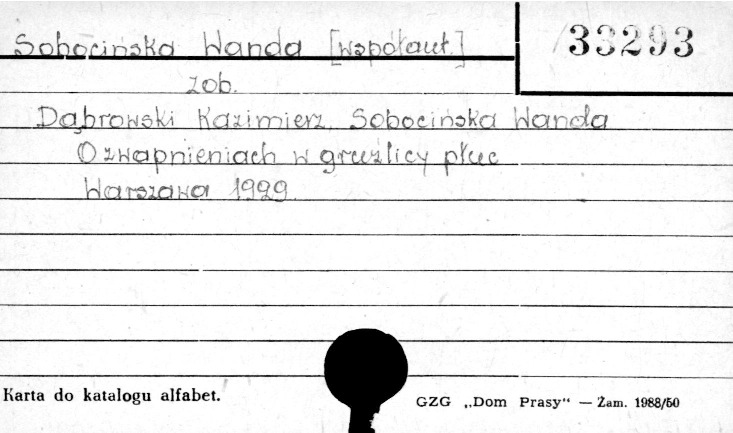 Sobocińska Wanda [współaut.]
33293
zob.
Dąbrowski Kazimierz, Sobocińska Wanda
O zwapnieniach w gruźlicy płuc
Warszawa 1929.
Karta do katalogu alfabet.
GZG „Dom Prasy" — Zam. 1988/50